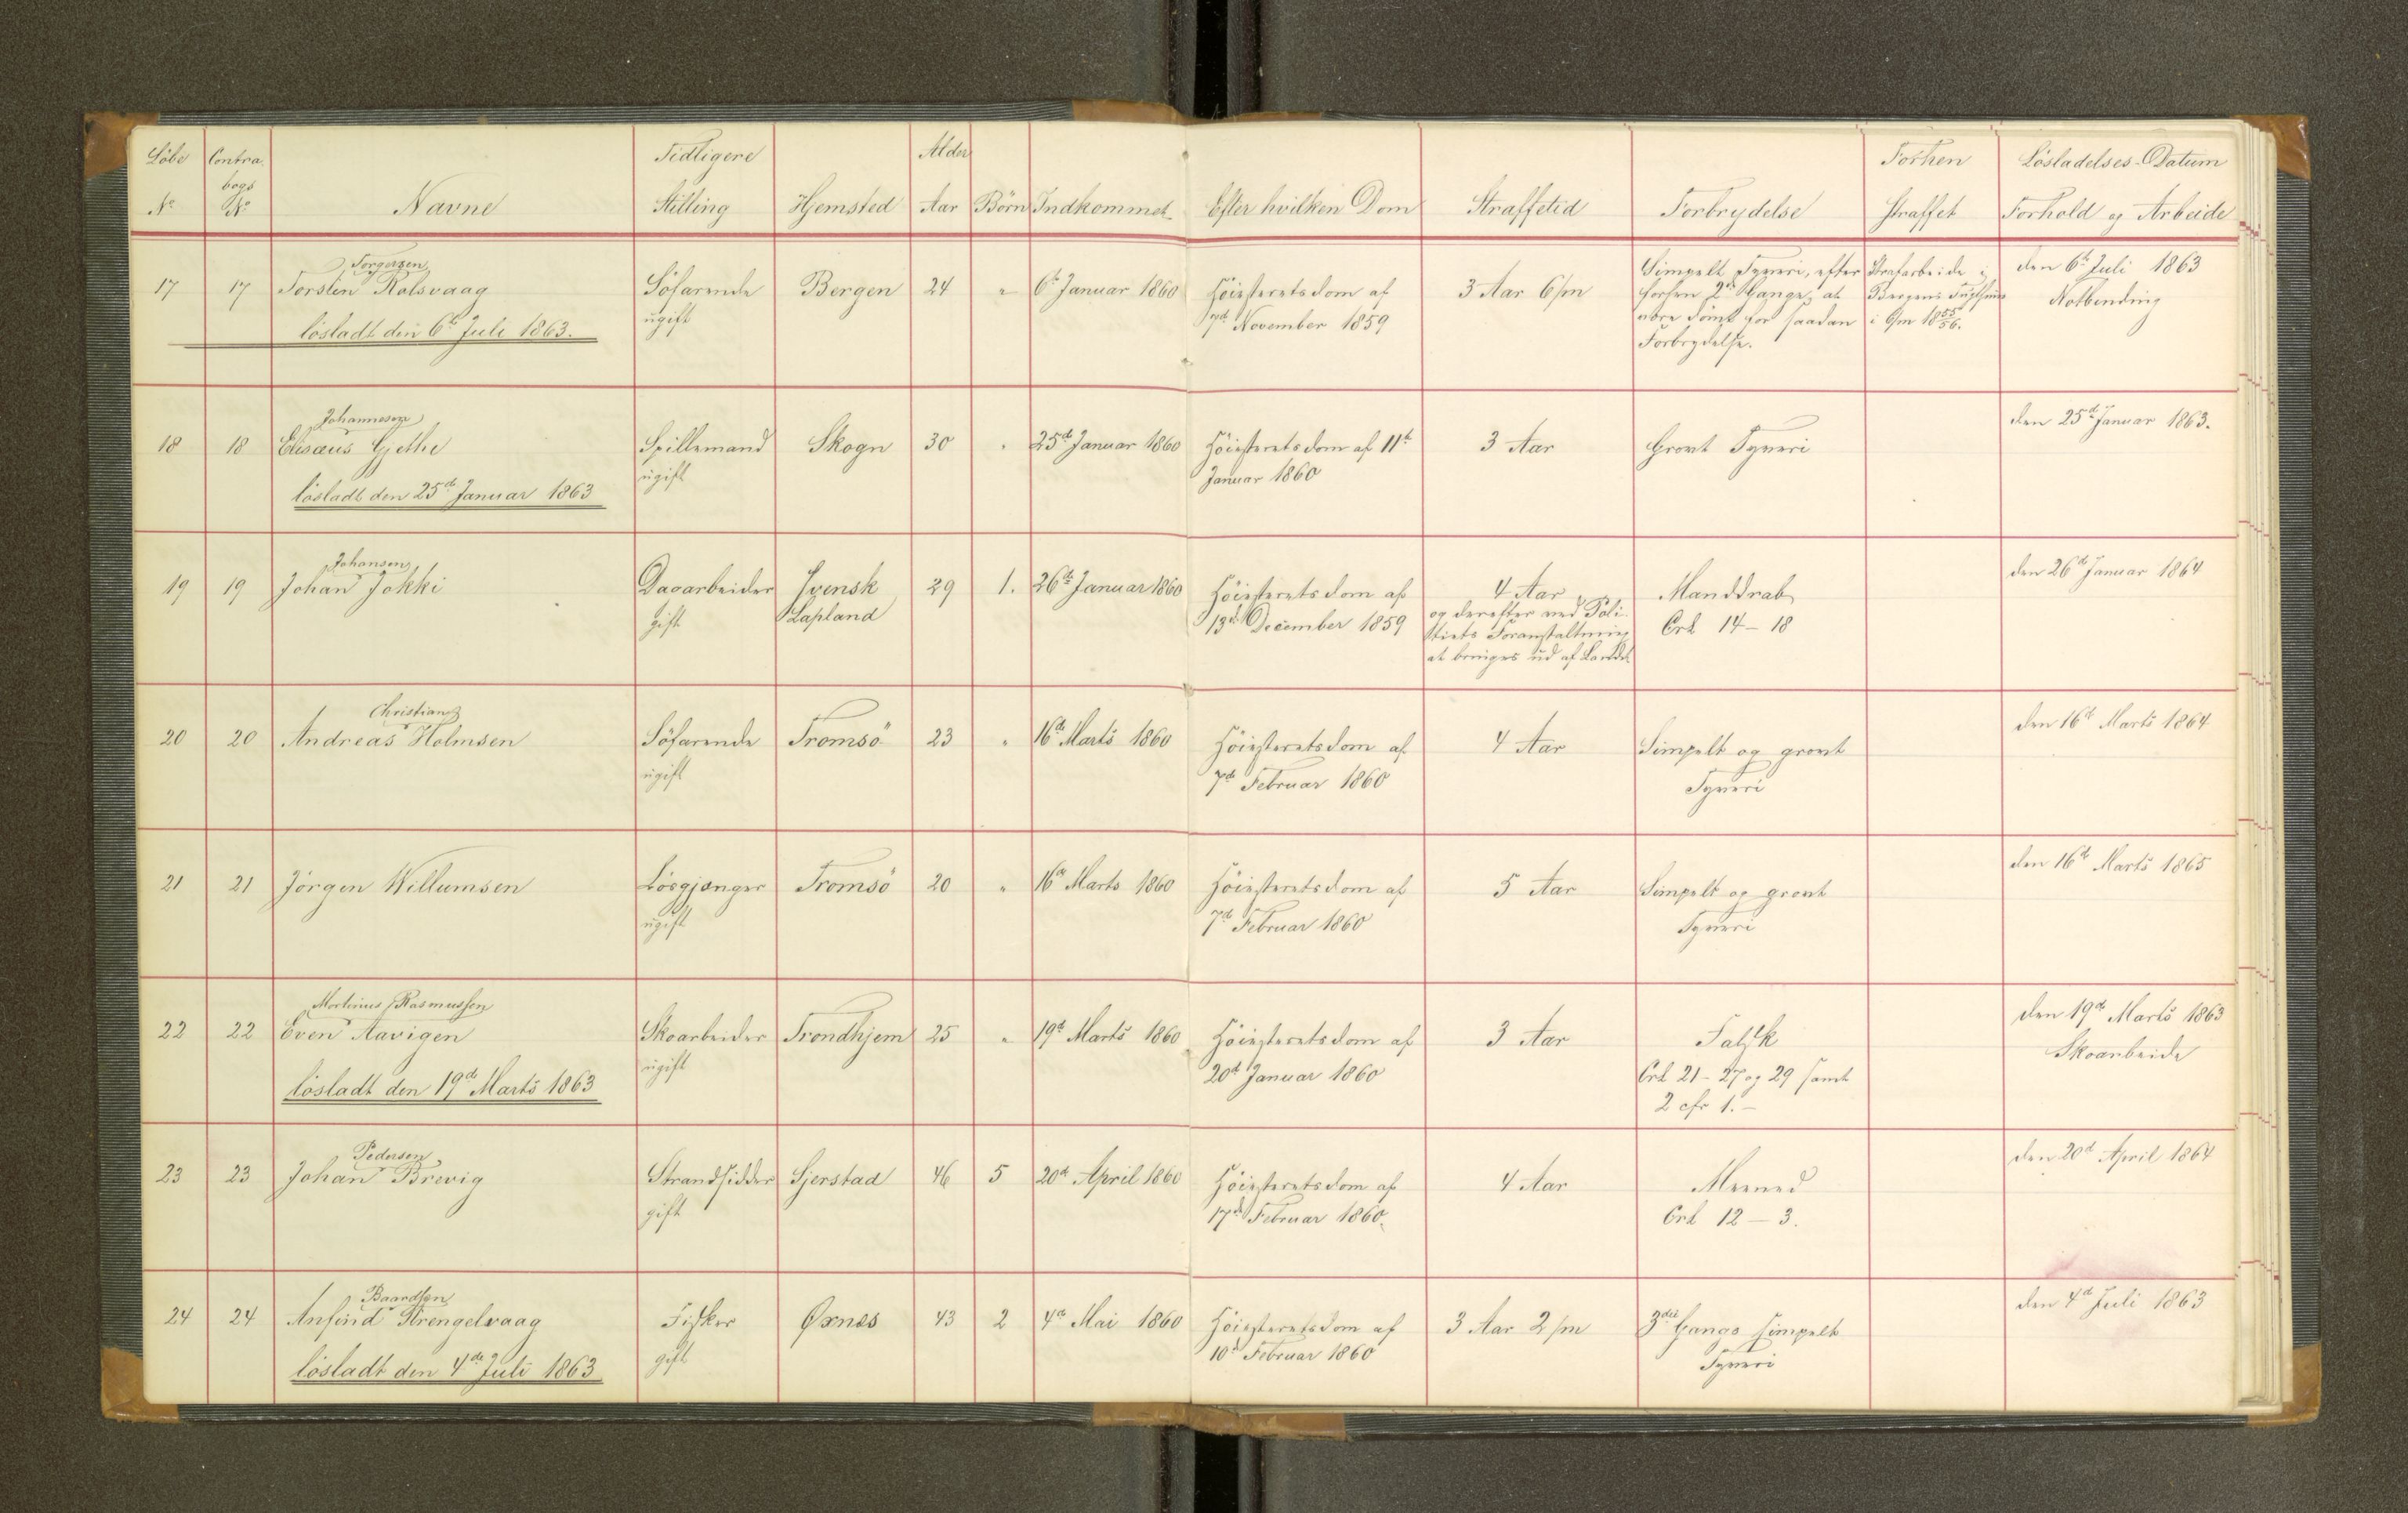 Löbe Contra Tidligere Alder Forhen Lösladelses-Datum
bogs
No No Navne Stilling Hjemsted Aar Börn Indkommet Efter hvilken Dom Straffetid Forbrydelse straffet Forhold og Arbeide
Torgersen Simpelt Tyveri, efter Strafarbeide i den 6te Juli 1863
17 17 Torstin Rolsvaag Söfarende Bergen 24 " 6te Januar 1860 Höiesteretsdom af 3 Aar 6/m forhen 2de Gange at Bergens Notbending
lösladt den 6te Juli 1863. ugift 7de November 1859 være dömt for saadan i 6/m 1855/56.
Forbrydelse.
Johannesen den 25de Januar 1863.
18 18 Elisæus Gjethe Spillemand Skogn 30 " 25de Januar 1860 Höiesteretsdom af 11te 3 Aar Grovt Tyveri
lösladt den 25de Januar 1863 ugift Januar 1860
Johansen den 26de Januar 1864
19 19 Johan Jokki Dagarbeider Svensk 29 1. 26de Januar 1860 Höiesteretsdom af 4 Aar Manddrab
gift Lapland 13de December 1859 og derefter ved Poli- Crl 14-18
tiets Foranstaltning
at bringes ud af Landet
Christian den 16de Marts 1864
20 20 Andreas Holmsen Söfarende Tromsö 23 " 16de Marts 1860 Höiesteretsdom af 4 Aar Simpelt og grovt
ugift 7de Februar 1860 Tyveri
den 16de Marts 1865
21 21 Jörgen Willumsen Lösgjænger Tromsö 20 " 16de Marts 1860 Höiesteretsdom af 5 Aar Simpelt og grovt
ugift 7de Februar 1860 Tyveri
Martinius Rasmussen den 19de Marts 1863
22 22 Even Aavigen Skoarbeider Trondhjem 25 " 19de Marts 1860 Höiesteretsdom af 3 Aar Falsk Skoarbeide
lösladt den 19de Marts 1863 ugift 20de Januar 1860 Crl 21-27 og 29 samt
2 cfr 1.-
Pedersen den 20de April 1864
23 23 Johan Brevig Strandsidder Gjerstad 46 5 20de April 1860 Höiesteretsdom af 4 Aar Meened
gift 17de Februar 1860. Crl 12-3.
Baardsen den 4de Juli 1863
24 24 Anfind Strengelvaag Fisker Øxnes 43 2 4de Mai 1860 Höiesteretsdom af 3 Aar 2/m 3die Gangs simpelt
lösladt den 4de Juli 1863 gift 10de Februar 1860 Tyveri